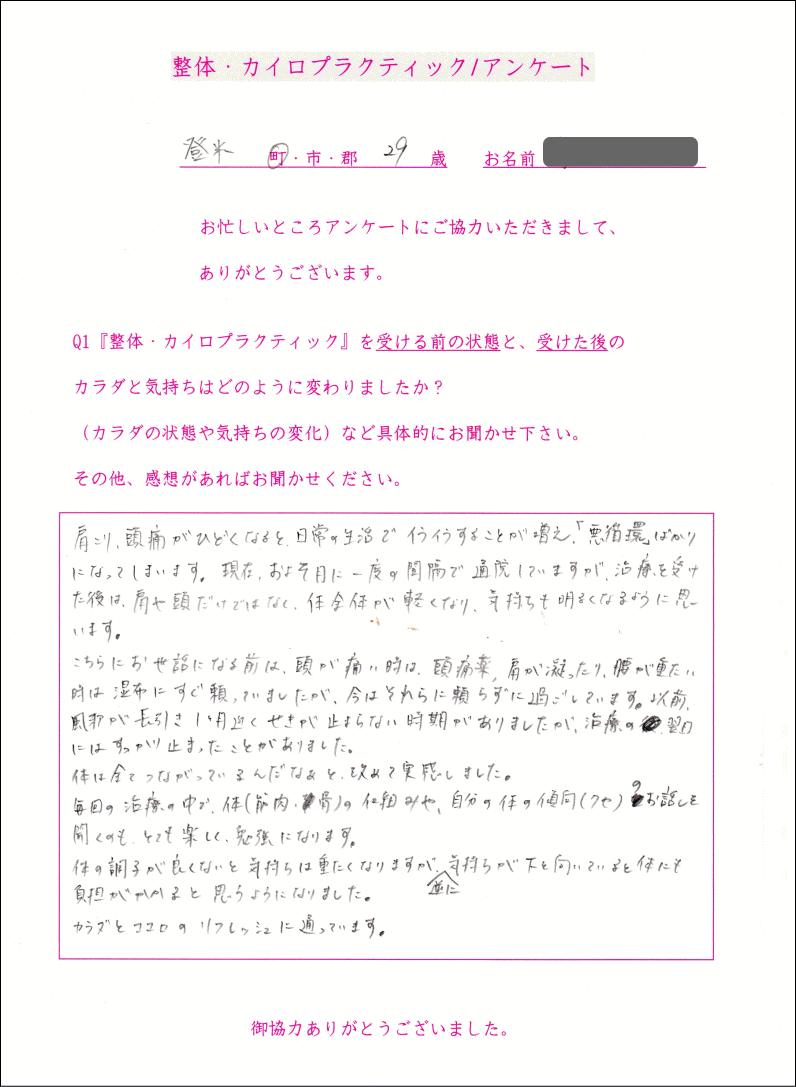 整体・カイロプラクティック/アンケート
登米 町・市・郡 29 歳 お名前
お忙しいところアンケートにご協力いただきまして、
ありがとうございます。
Q1『整体・カイロプラクティック』を受ける前の状態と、受けた後の
カラダと気持ちはどのように変わりましたか？
（カラダの状態や気持ちの変化）など具体的にお聞かせ下さい。
その他、感想があればお聞かせください。
肩こり、頭痛がひどくなると、日常の生活でイライラすることが増え、「悪循環」ばかり
になってしまいます。現在、およそ月に一度の間隔で通院していますが、治療を受け
た後は、肩や頭だけではなく、体全体が軽くなり、気持ちも明るくなるように思
います。
こちらにお世話になる前は、頭が痛い時は、頭痛薬、肩が凝ったり、腰が重たい
時は湿布にすぐ頼っていましたが、今はそれらに頼らずに過ごしています。以前、
風邪が長引き1ヶ月近くせきが止まらない時期がありましたが、治療の翌日
にはすっかり止まったことがありました。
体は全てつながっているんだなぁと、改めて実感しました。
毎回の治療の中で、体(筋肉・骨)の仕組みや、自分の体の傾向(クセ)のお話しを
聞くのも、とても楽しく、勉強になります。
体の調子が良くないと気持ちは重たくなりますが、逆に気持ちが下を向いていると体にも
負担がかかると思うようになりました。
カラダとココロのリフレッシュに通っています。
御協力ありがとうございました。